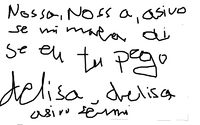 Nossa, Nossa, asivo
se mi mara ai
se eu tu pego
delisa, delisa
asivo sê mi